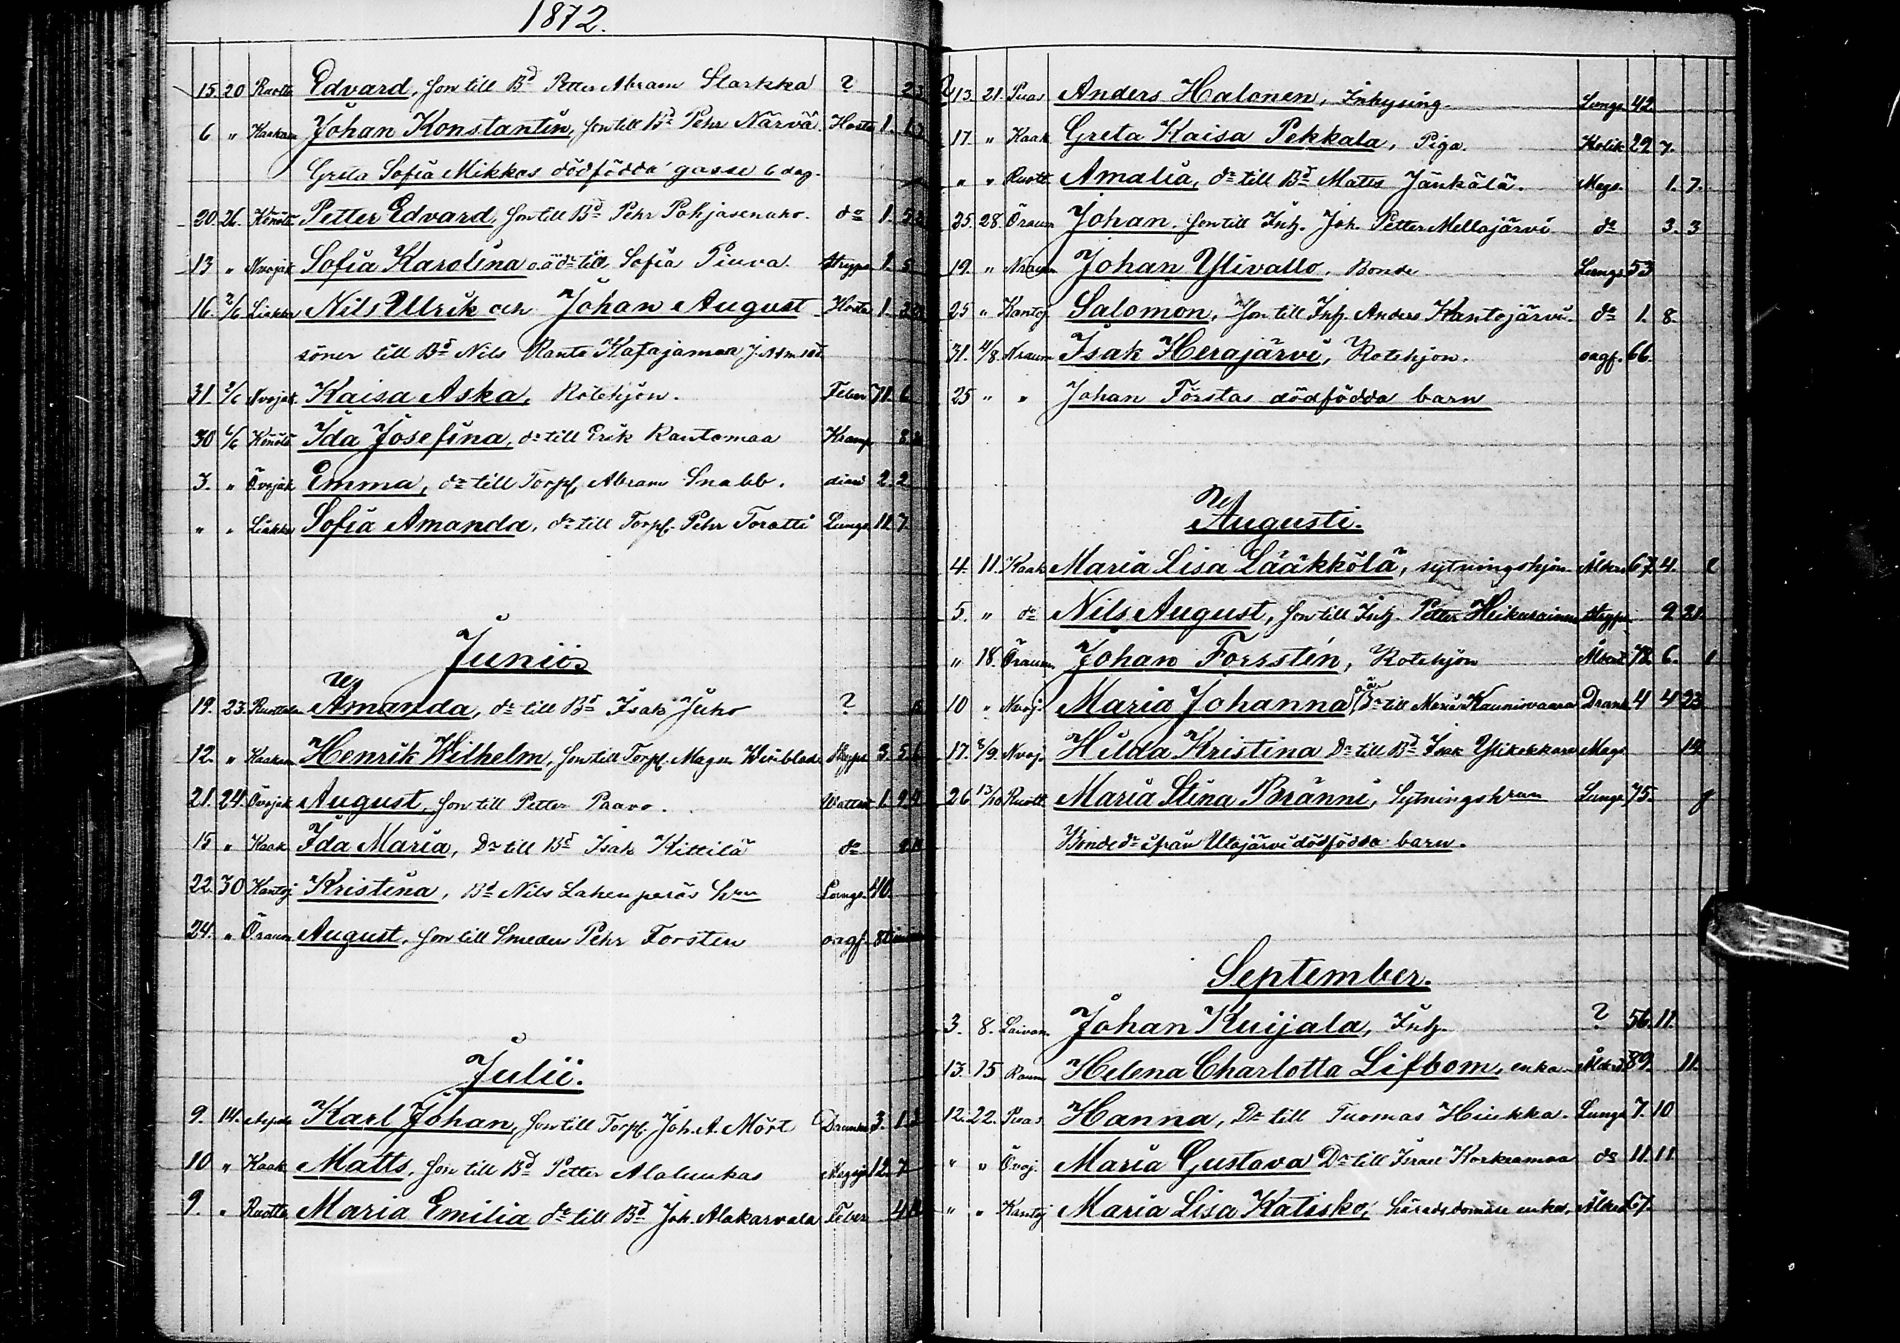 1872.
15. 20 Ruotta Edvard, son till Bd Petter Abram Starkka ? 23
6 " Kaakam Johan Konstantin, son till Bd Pehr Närvä Hosta 1.
Greta Sofia Mikkos dödfödda gosse 6 dag.
20. 26. Petter Edvard, son till Bd Pehr Pohjasenaho. do 1.
13 " Nvojak Sofia Karolina o.ä. dr till Sofia Piuva. Stryps 1. 5
16. 2/6 Liakka Nils Ulrik och Johan August Hosta 1.
söner till Bd Nils Ranta Katajamaa
31 2/6 Nvojak Kaisa Aska, Rotehjon. Feber 71. 6
30 6/6 Ida Josefina, dr till Erik Rantamaa Kramp
3. " Övojak Emma, dr till Torpf. Abram Snabb. diar 2. 2
" " Liakka Sofia Amanda, dr till Torpf. Pehr Toratti Lungs 11. 7
Junii
19. 23. Ruottala Amanda, dr till Bd Isak Juho ?
12. " Kaakam Henrik Wilhelm, son till Torpf. Magn. Wiiblad Stryps 3. 5.
21. 24. Övojak August, son till Petter Paavo. Watten 1.
15 " Kaak Ida Maria, Dr till Bd Isak Kittilä do
22. 30 Kantoj Kristina, Bd Nils Lahenperäs hru Lungs. 40.
24. " Öraum August, son till Smeden Pehr Forsten oagf.
Julii.
9. 14. Karl Johan, son till Torpf. Joh. A. Mört 3. 1
10 " Kaak Matts, son till Bd Petter Alaluukas 12. 7
9. " Ruotta Maria Emilia dr till Bd Joh. Alakarvala Feber
13. 21. Puas Anders Halonen, Inhysing. Lungs 42
17. " Kaak Greta Kaisa Pekkala, Piga. Kolik 29 7.
" " Ruott. Amalia, dr till Bd Matts Jänkälä. Mags. 1. 7.
25. 28. Öraum Johan. son till Inh. Joh. Petter Mellajärvi do 3. 3
19. " Nraum Johan Ylivallo, Bonde Lungs 53
25 " Kantoj Salomon, son till Inh. Anders Kantojärvi. do 1. 8.
31. 4/8 Nraum Isak Herajärvi, Rotehjon. oagf. 66.
25 " " Johan Förstas dödfödda barn
Augusti.
4. 11. Kaak Maria Lisa Lääkkölä, sytningshjon Ålder 67. 4.
5. " do Nils August, son till Inh. Petter Stryps 9 21
" 18. Öraum Johan Forsstén, Rotehjon 78. 6.
10 " Nvoj. Maria Johanna o.ä. Dr till Maria Kaunisvaara 4 4 23
17. 8/9. Nvoj. Hilda Kristina Dr till Bd Isak Mags
26 13/10 Ruott. Maria Stina Bränni, Sytningshrun Lungs 75.
Bonde dr ifrån Ulajärvi dödfödda barn.
September.
3. 8. Laivan. Johan Kuijala, Inh. ? 56. 11.
13. 15 Raum Helena Charlotta Lifbom, enka Ålder 89. 11.
12. 22. Puas Hanna, Dr till Tuomas Hiukka. Lungs 7. 10
" " Övoj. Maria Gustava Dr till Israel Korkeamaa do 11. 11.
" " Kantoj Maria Lisa Katisko, häradsdomare enka, Ålder 67.